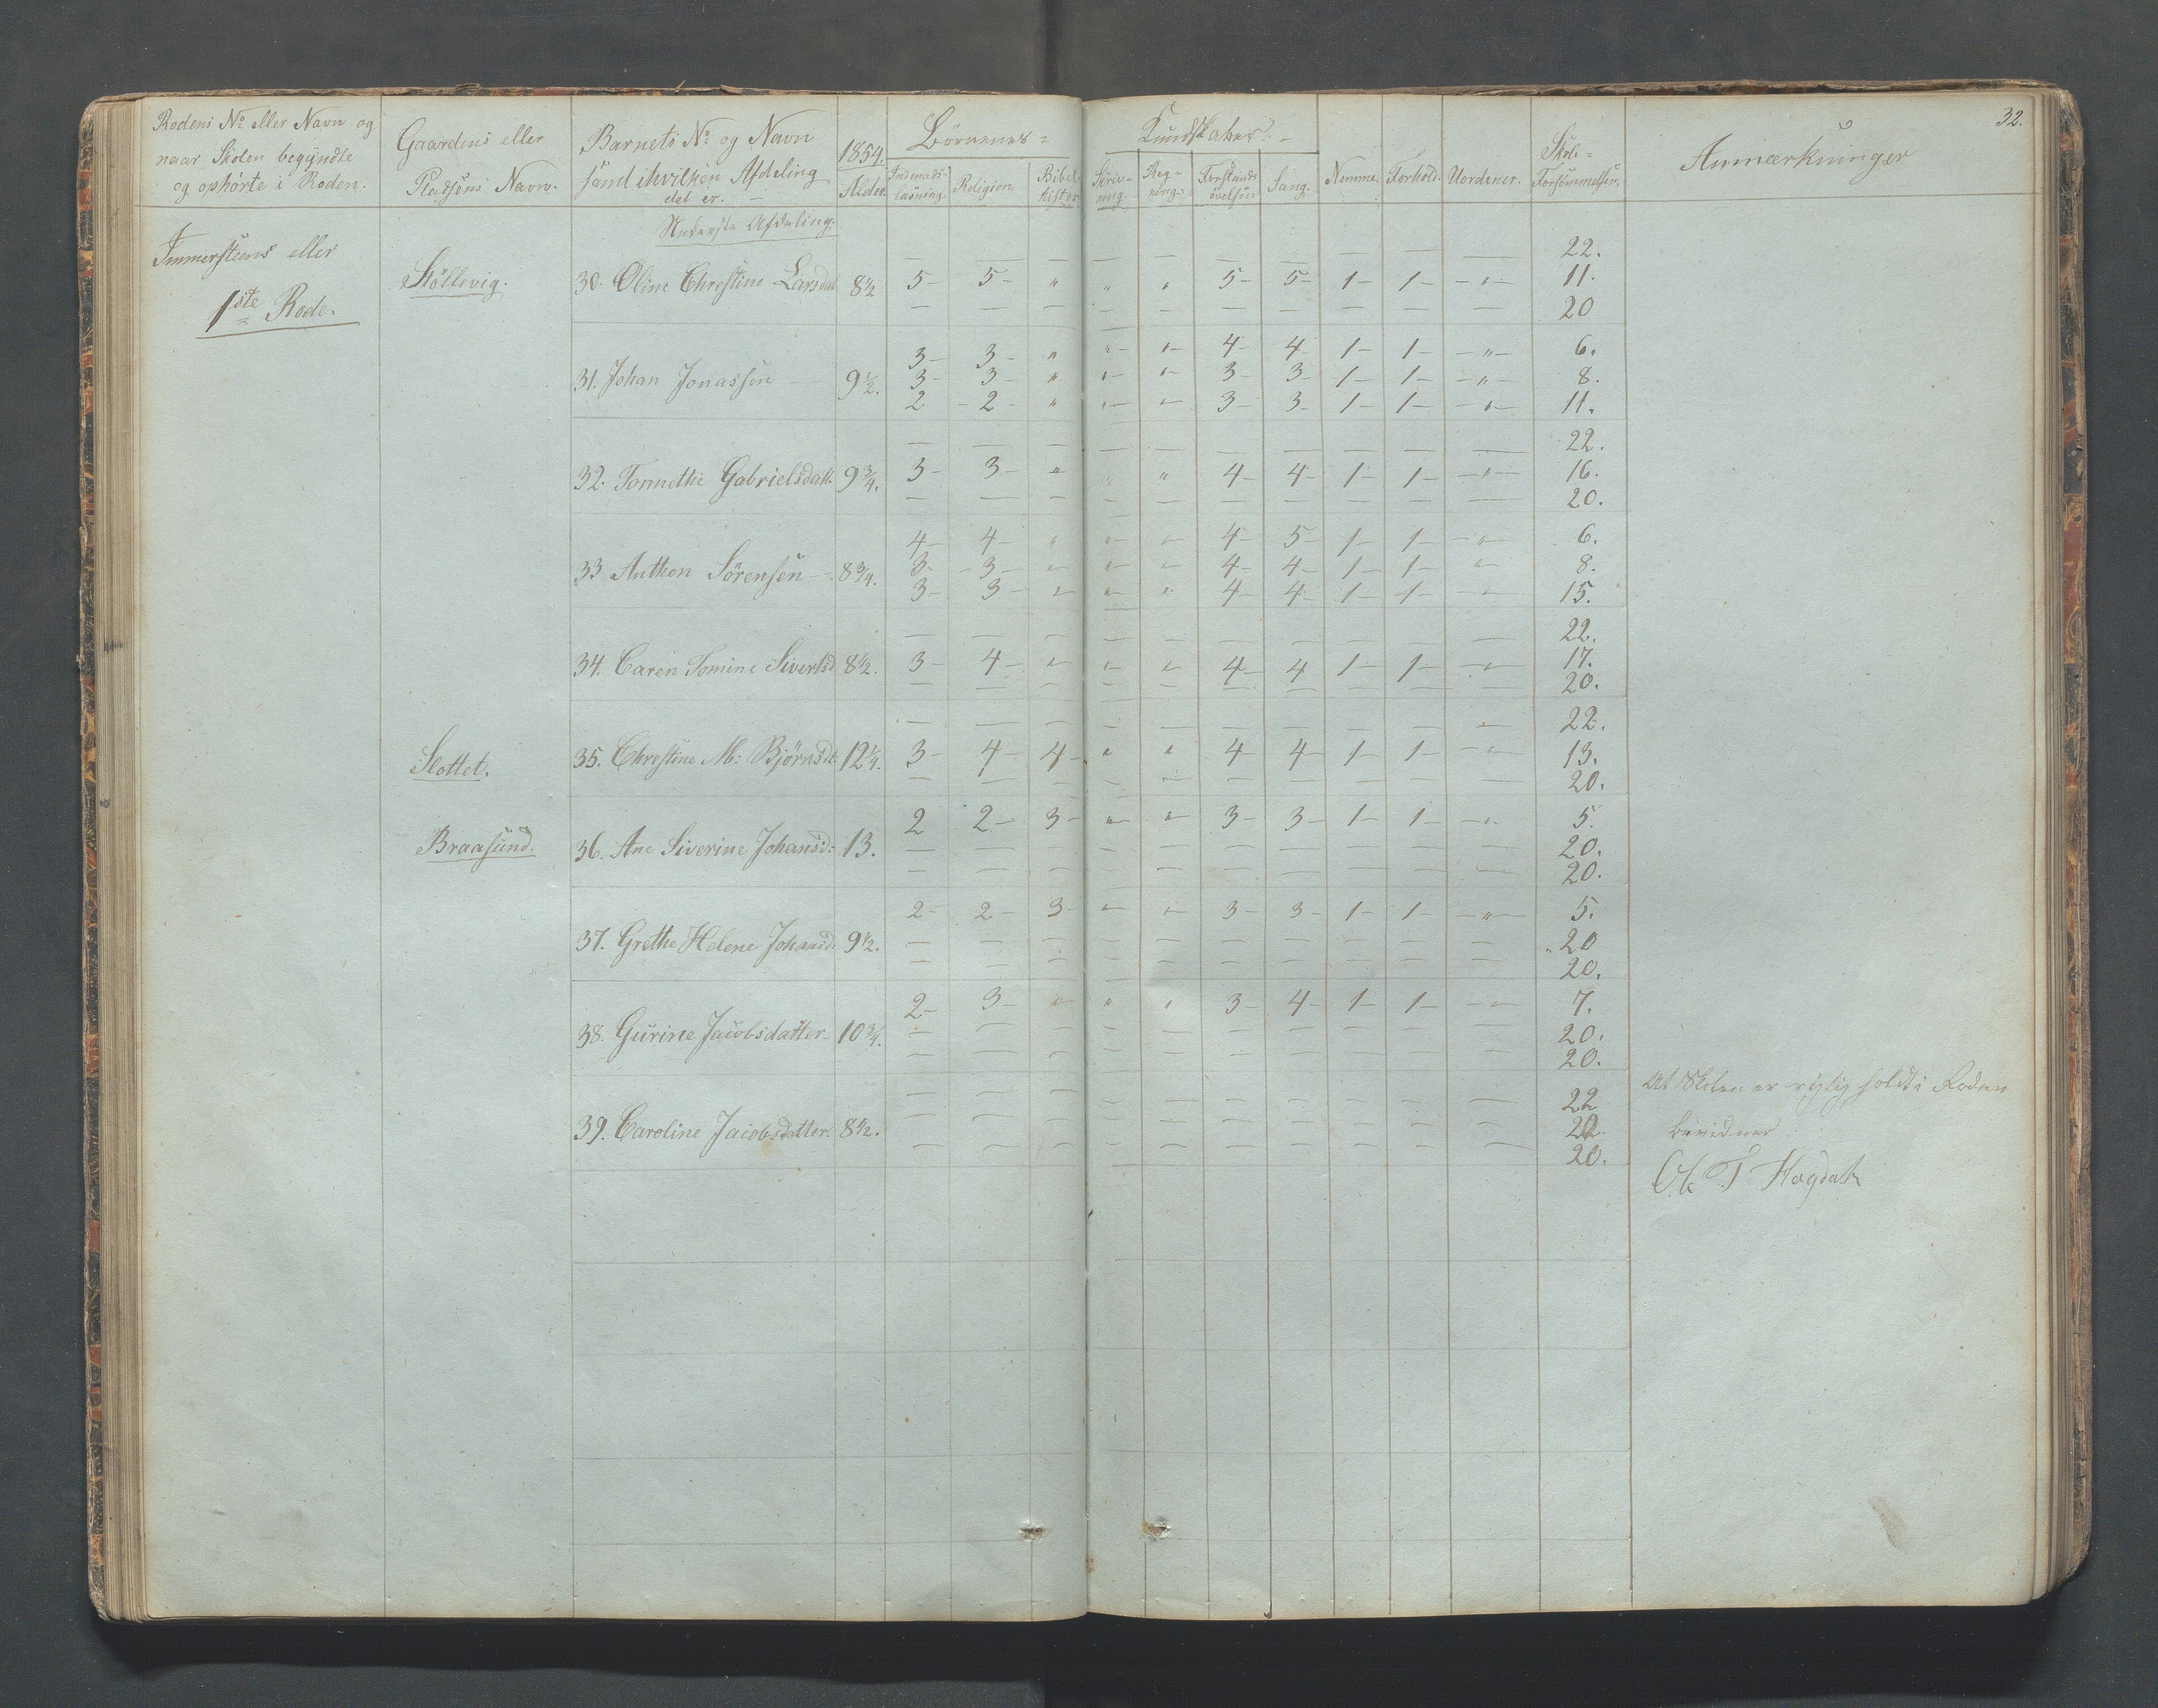 32.
Rodens No eller Navn og
naar Skolen begyndte
og ophörte i Roden.
Gaardens eller
Pladsens Navn.
Barnets No og Navn
samt ihvilken Afdeling
det er. —
1854.
Alder.
Börnenes =
Kundskaber. —
Indenads-
læsning.
Religion
Bibel
histor
Skriv-
ning.
Reg-
ning.
Forstands
övelser.
Sang.
Nemme.
Forhold.
Uordener.
Skole-
Forsömmelser.
Anmærkninger
Nederste Afdeling.
eller
1ste Rode.
Stöllevig.
— — — — — — — — — — 22.
30. Oline Christine Larsdat 8 1/2 5- 5- " " " 5- 5- 1- 1- -"- 11.
— — — — — — — — — 20
3- 3- " "- "- 4- 4 1- 1- -"- 6.
31. Johan Jonassen 9 1/2. 3- 3- " "- "- 3- 3- 1- 1- -"- 8.
2 -2- " "- "- 3- 3- 1- 1- -"- 11.
— — — — — — — — — 22.
32. Tonnethe Gabrielsdatt. 9 3/4. 3- 3- " " " 4- 4- 1- 1- -"- 16.
— — — — — — — — — — 20.
4- 4- " "- "- 4- 5- 1- 1- -"- 6.
33 Anthon Sörensen 8 3/4. 3- -3- " "- "- 4- 4- 1- 1- " 8.
3- 3- " " " 4- 4- 1- 1- -"- 15.
— — — — — — — — — — 22.
34. Caren Tomine Sivertsd 8 1/2. 3- 4- " " " 4- 4 1- 1- -"- 17.
— — — — — — — — — — 20.
— — — — — — — — — " 22.
Slottet.
35. Christine M: Bjørnsdt: 12 1/4. 3- 4- 4- " " 4- 4- 1- 1- -"- 13.
— — — — — — — — — — 20.
2 2- 3- " " 3- 3- 1- 1- -"- 5.
Braasund.
36. Ane Siverine Johansd: 13. — — — — — — — — — — 20.
— — — — — — — — — — 20.
2- 2- 3- " " 3- 3- 1- 1- -"- 5.
37. Grethe Helene Johansd. 9 1/2. — — — — — — — — — — 20
— — — — — — — — — — 20.
2- 3- " " " 3- 4- 1- 1- -"- 7.
38. Gurine Jacobsdatter 10 3/4. — — — — — — — — — — 20.
— — — — — — — — — — 20.
— — — — — — — — — — 22
39. Caroline Jacobsdatter. 8 1/2. — — — — — — — — — — 20.
— — — — — — — — — — 20.
At Skolen er rigtig holdt i Roden
bevidner